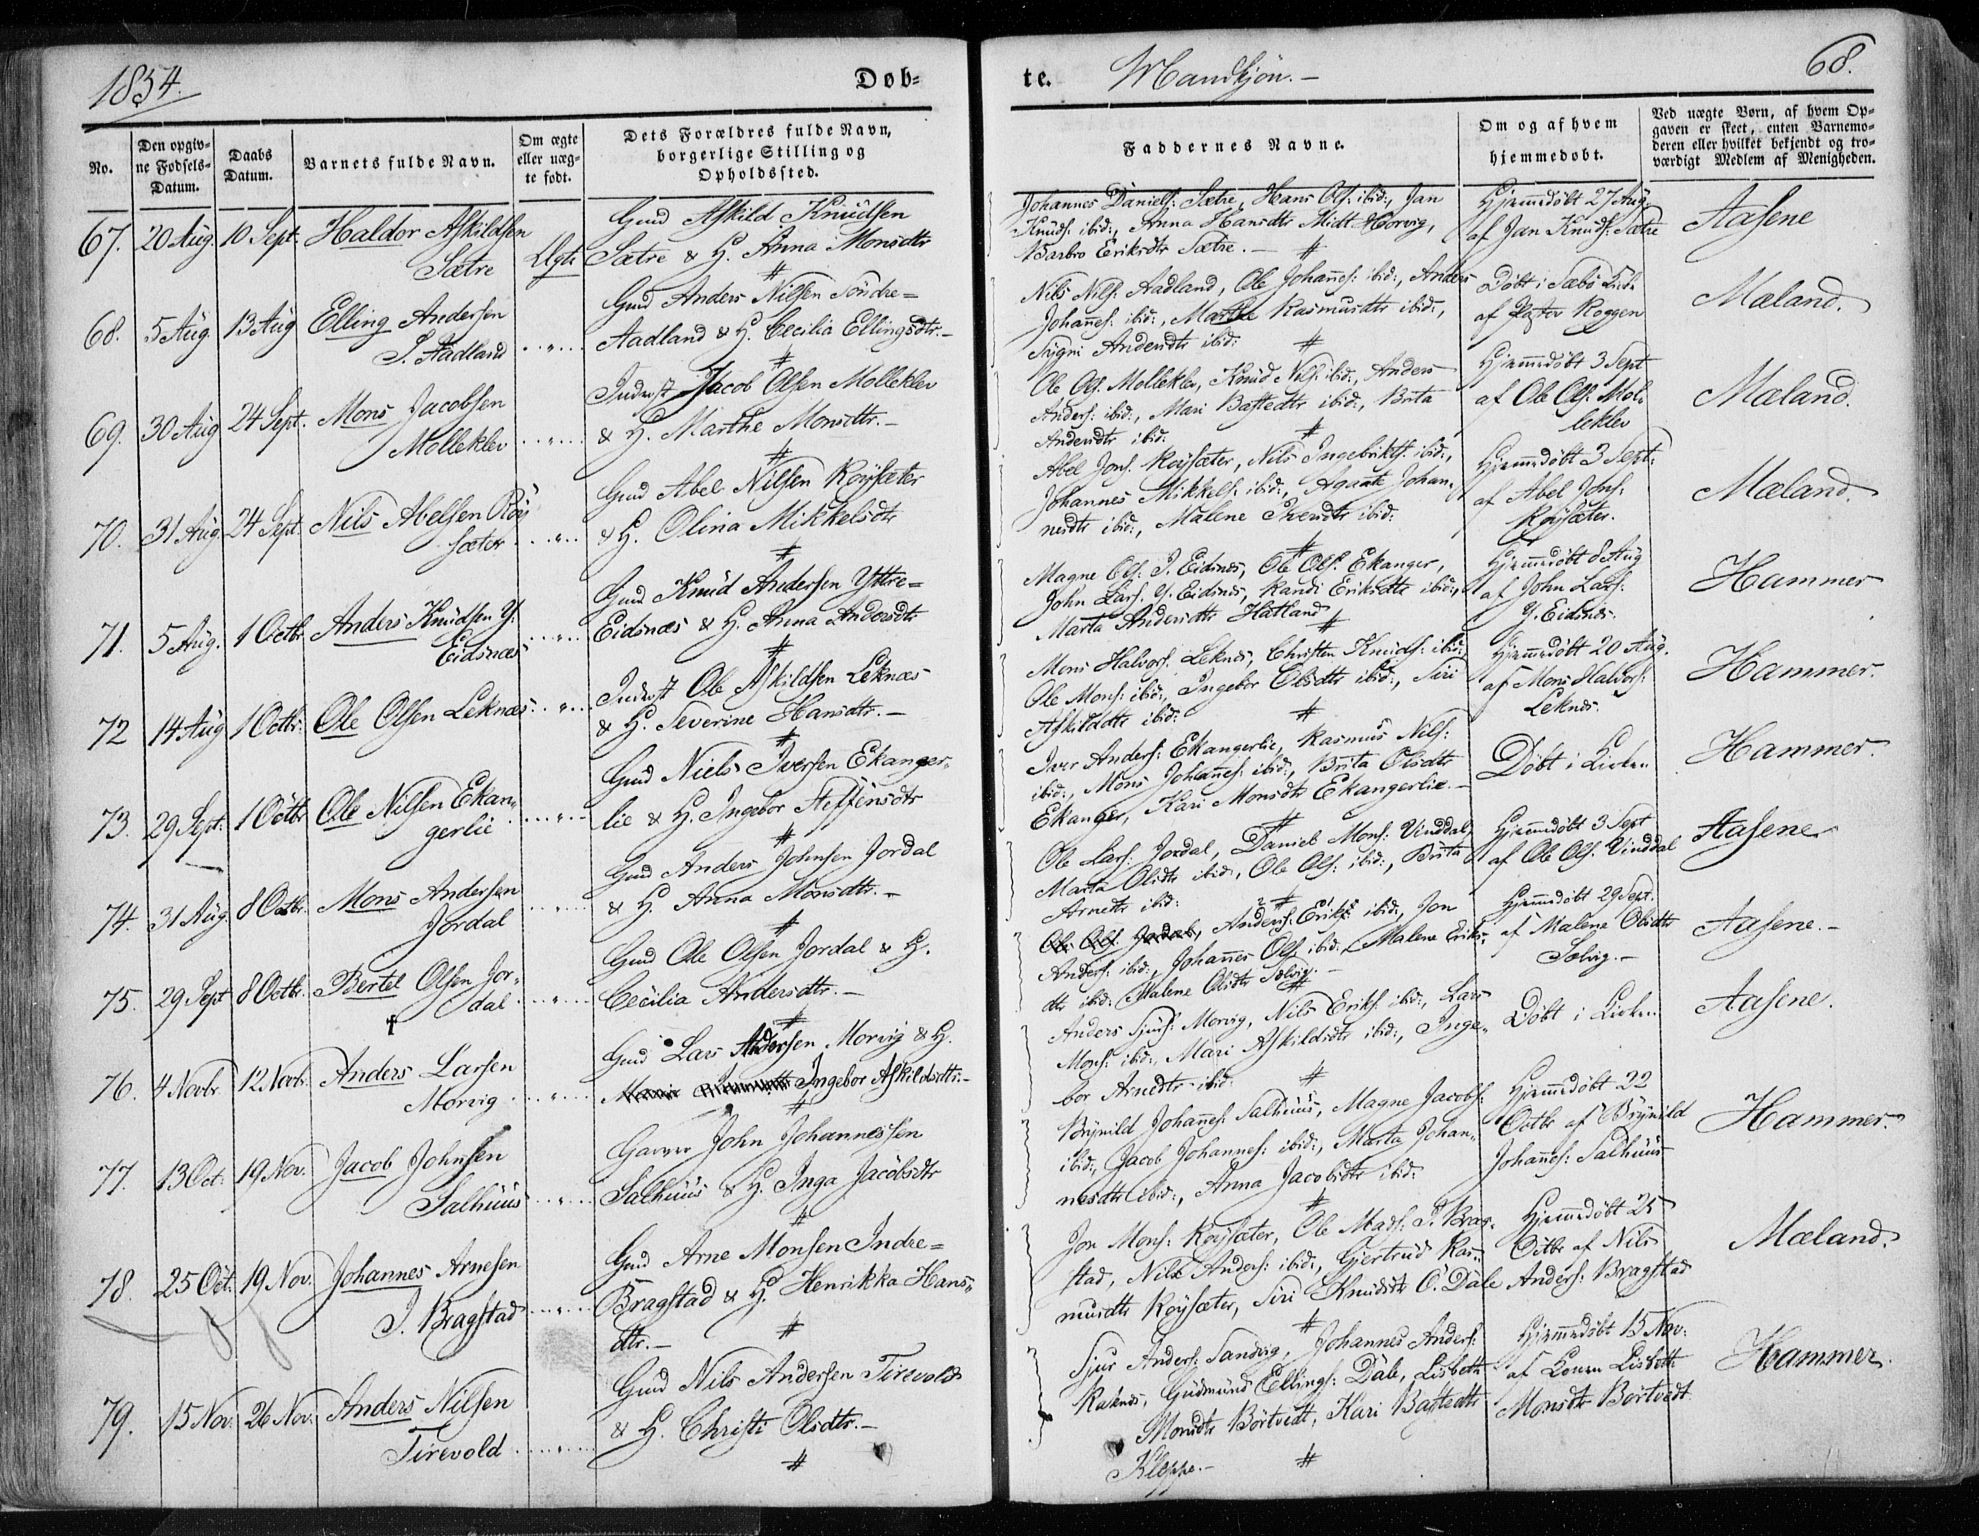 1854.
Døb=
te. Mandkjön. –
68.
No.
Den opgiv=
ne Fødsels=
Datum.
Daabs
Datum.
Barnets fulde Navn.
Om ægte
eller uæg=
te født.
Dets Forældres fulde Navn,
borgerlige Stilling og
Opholdssted.
Faddernes Navne.
Om og af hvem
hjemmedøbt.
Ved uægte Børn, af hvem Op=
gaven er skeet, enten Barnemo=
deren eller hvilket bekjendt og tro=
værdigt Medlem af Menigheden.
67. 20 Aug 10 Sept. Haldor Askildsen
Sætre
Ægte
Gmd Askild Knudsen
Sætre & H. Anna Monsdtr
Johannes Daniels: Sætre, Hans Ols: ibid:, Jan
Knuds: ibid:, Anna Hansdtr Midt Horvig,
Barbro Eriksdtr Sætre. –
Hjemmedöbt 27 Aug.
af Jan Knuds: Sætre
Aasene
68. 5 Aug. 13 Aug Elling Andersen
I. Aadland
Gmd Anders Nilsen Söndre=
Aadland & H. Cecilia Ellingsdtr. –
Nils Nils: Aadland, Ole Johannes: ibid:, Anders
Johannes: ibid:, Marthe Rasmusdtr ibid:,
Andersdtr ibid:
Döbt i Sæbö Kirke
af Pastor Koggen
Mæland.
69. 30 Aug 24 Sept. Mons Jacobsen
Molleklev
Inderst Jacob Olsen Molleklev
& H. Marthe Monsdtr. –
Ole Ols: Molleklev, Knud Nils: ibid:, Anders
Anders: ibid:, Mari Bastedtr ibid:, Brita
Andersdtr ibid:
Hjemmedöbt 3 Sept
af Ole Ols: Mol=
leklev
Mæland.
70. 31 Aug 24 Sept. Nils Abelsen Röy
sæter
Gmd Abel Nilsen Röysæter
& H. Olina Mikkelsdtr
Abel Jons: Röysæter, Nils Ingebrikts: ibid:,
Johannes Mikkels: ibid:, Agaate Johan=
nesdtr ibid:, Malene ibid:
Hjemmedöbt 3 Sept:
af Abel Johs:
Röysæter.
Mæland.
71. 5 Aug. 1 Octbr Anders Knudsen Y.
Eidsnæs
Gmd Knud Andersen Yttre=
Eidsnæs & H. Anna Andersdtr
Magne Ols: I. Eidsnes, Ole Ols: Ekanger,
John Lars: Y. Eidsnes, Randi Eriksdtr ibid:,
Marta Andersdtr Hatland
Hjemmedöbt 8 Aug
af John Lars:
Y. Eidsnes.
Hammer
72 14 Aug 1 Octbr: Ole Olsen Leknæs
Inderst Ole Askildsen Leknæs
& H. Severine Hansdtr. –
Mons Halvors: Leknes, Christen Knuds: ibid:
Ole Mons: ibid:, Ingebor Olsdtr ibid:, Siri
Askildsdtr ibid:
Hjemmedöbt 20 Aug.
af Mons Halvors:
Leknes.
Hammer.
73. 29 Sept: 1 Octbr Ole Nilsen Ekan=
gerlie
Gmd Niels Iversen Ekanger=
lie & H. Ingebor Steffensdtr
Iver Anders: Ekangerlie, Rasmus Nils:
ibid:, Mons Johannes: ibid:, Brita Olsdtr
Ekanger, Kari Monsdtr Ekangerlie. –
Döbt i Kirken
Hammer.
74. 31 Aug. 8 Octbr. Mons Andersen
Jordal
Gmd Anders Johnsen Jordal
& H. Anna Monsdtr. –
Ole Lars: Jordal, Daniel Mons: Vinddal,
Marta Olsdtr ibid:, Ole Ols: ibid:, Brita
Arnedtr ibid:
Hjemmedöbt 3 Sept
af Ole Ols: Vinddal
Aasene
75. 29 Sept 8 Octbr. Bertel Olsen Jor=
dal
Gmd Ole Olsen Jordal & H.
Cecilia Andersdtr. –
Ole Ols: Jordal, Anders: Eriks: ibid:, Jon
Anders: ibid:, Johannes Ols: ibid:, Malene Eriks=
dtr ibid: Malene Olsdtr Solvig. –
Hjemmedöbt 29 Sept.
af Malene Olsdtr
Solvig. –
Aasene. –
76. 4 Novbr. 12 Novbr. Anders Larsen
Morvig
Gmd Lars Andersen Morvig & H.
Ingebor Askildsdtr. –
Anders Sjurs: Morvig, Nils Eriks: ibid:, Lars
Mons: ibid:, Mari Askildsdtr ibid:, Inge=
bor Arnedtr ibid:
Döbt i Kirken
Aasene.
77. 13 Oct: 19 Nov. Jacob Johnsen
Salhuus
Garver John Johannessen
Salhuus & H. Inga Jacobsdtr
Brynild Johannes: Salhuus, Magne Jacobs:
ibid:, Jacob Johannes: ibid:, Marta Johan=
nesdtr ibid:, Anna Jacobsdtr ibid:
Hjemmedöbt 22
Octbr af Brynild
Johannes: Salhuus
Hammer.
78. 25 Oct. 19 Nov. Johannes Arnesen
I. Bragstad
Gmd Arne Monsen Indre=
Bragstad & H. Henrikka Hans=
dtr. –
Jon Mons: Röysæter, Ole Mads: I. Brag=
stad, Nils Anders: ibid:, Gjertrud Ras=
musdtr Röysæter, Siri Knudsdtr O. Dale
Hjemmedöbt 25
Octbr af Nils
Anders: Bragstad
Mæland.
79. 15 Nov. 26 Nov. Anders Nilsen
Tirevold
Gmd Nils Andersen Tirevold
& H. Christi Olsdtr. –
Sjur Anders: Sandvig, Johannes Anders:
Raknes, Gudmund Ellings: Dale, Lisbeth
Monsdtr Börtvedt, Kari Bastedtr
Kleppe. –
Hjemmedöbt 15 Nov:
af Konen Lisbeth
Monsdtr Börtvedt
Hammer.